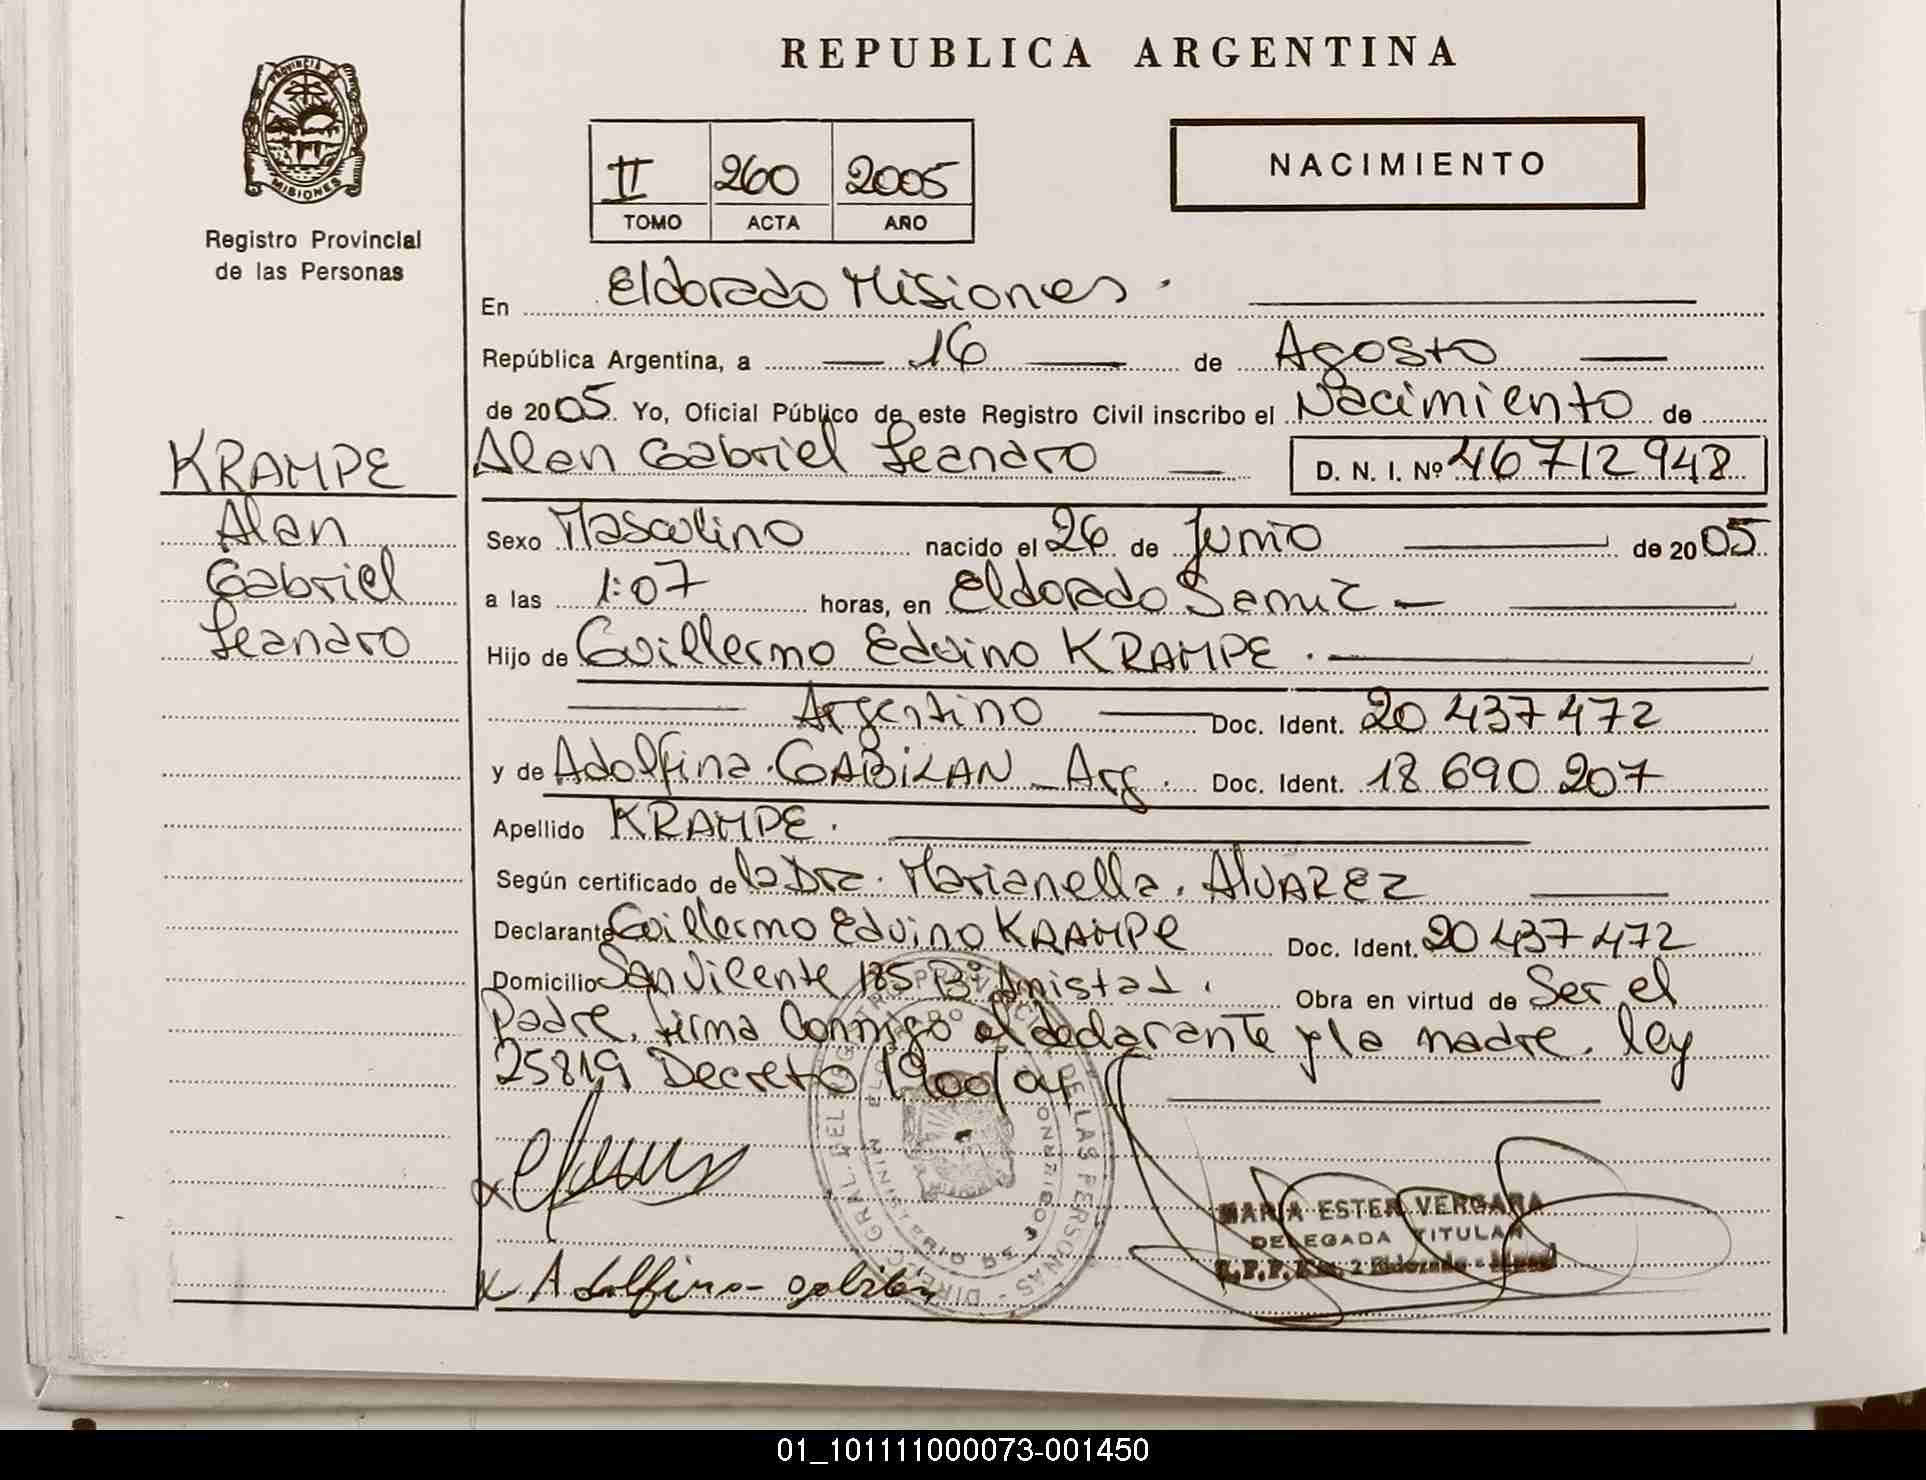 REPUBLICA ARGENTINA
PROVINCIA DE
MISIONES
Registro Provincial
de las Personas
II 260 2005
TOMO ACTA AÑO
NACIMIENTO
En Eldorado Misiones.
República Argentina, a 16 de Agosto
de 2005. Yo, Oficial Público de este Registro Civil inscribo el Nacimiento de
Alan Gabriel Leandro D. N. I. Nº 46712948
KRAMPE
Alan
Gabriel
Leandro
Sexo Masculino nacido el 26 de Junio de 2005
a las 1:07 horas, en Eldorado Samic
Hijo de Guillermo Edvino KRAMPE.
Argentino Doc. Ident. 20 437 472
y de Adolfina. GABILAN - Arg. Doc. Ident. 18 690 207
Apellido KRAMPE.
Según certificado de la Dra. Marianella. ALVAREZ
Declarante Guillermo Edvino KRAMPE Doc. Ident. 20 437 472
Domicilio San Vicente 185 Bº Amistad. Obra en virtud de Ser el
Padre. firma Conmigo el declarante y la madre. ley
25819 Decreto 1900/04
MARIA ESTER VERGARA
DELEGADA TITULAR
x Adolfina
01_101111000073-001450